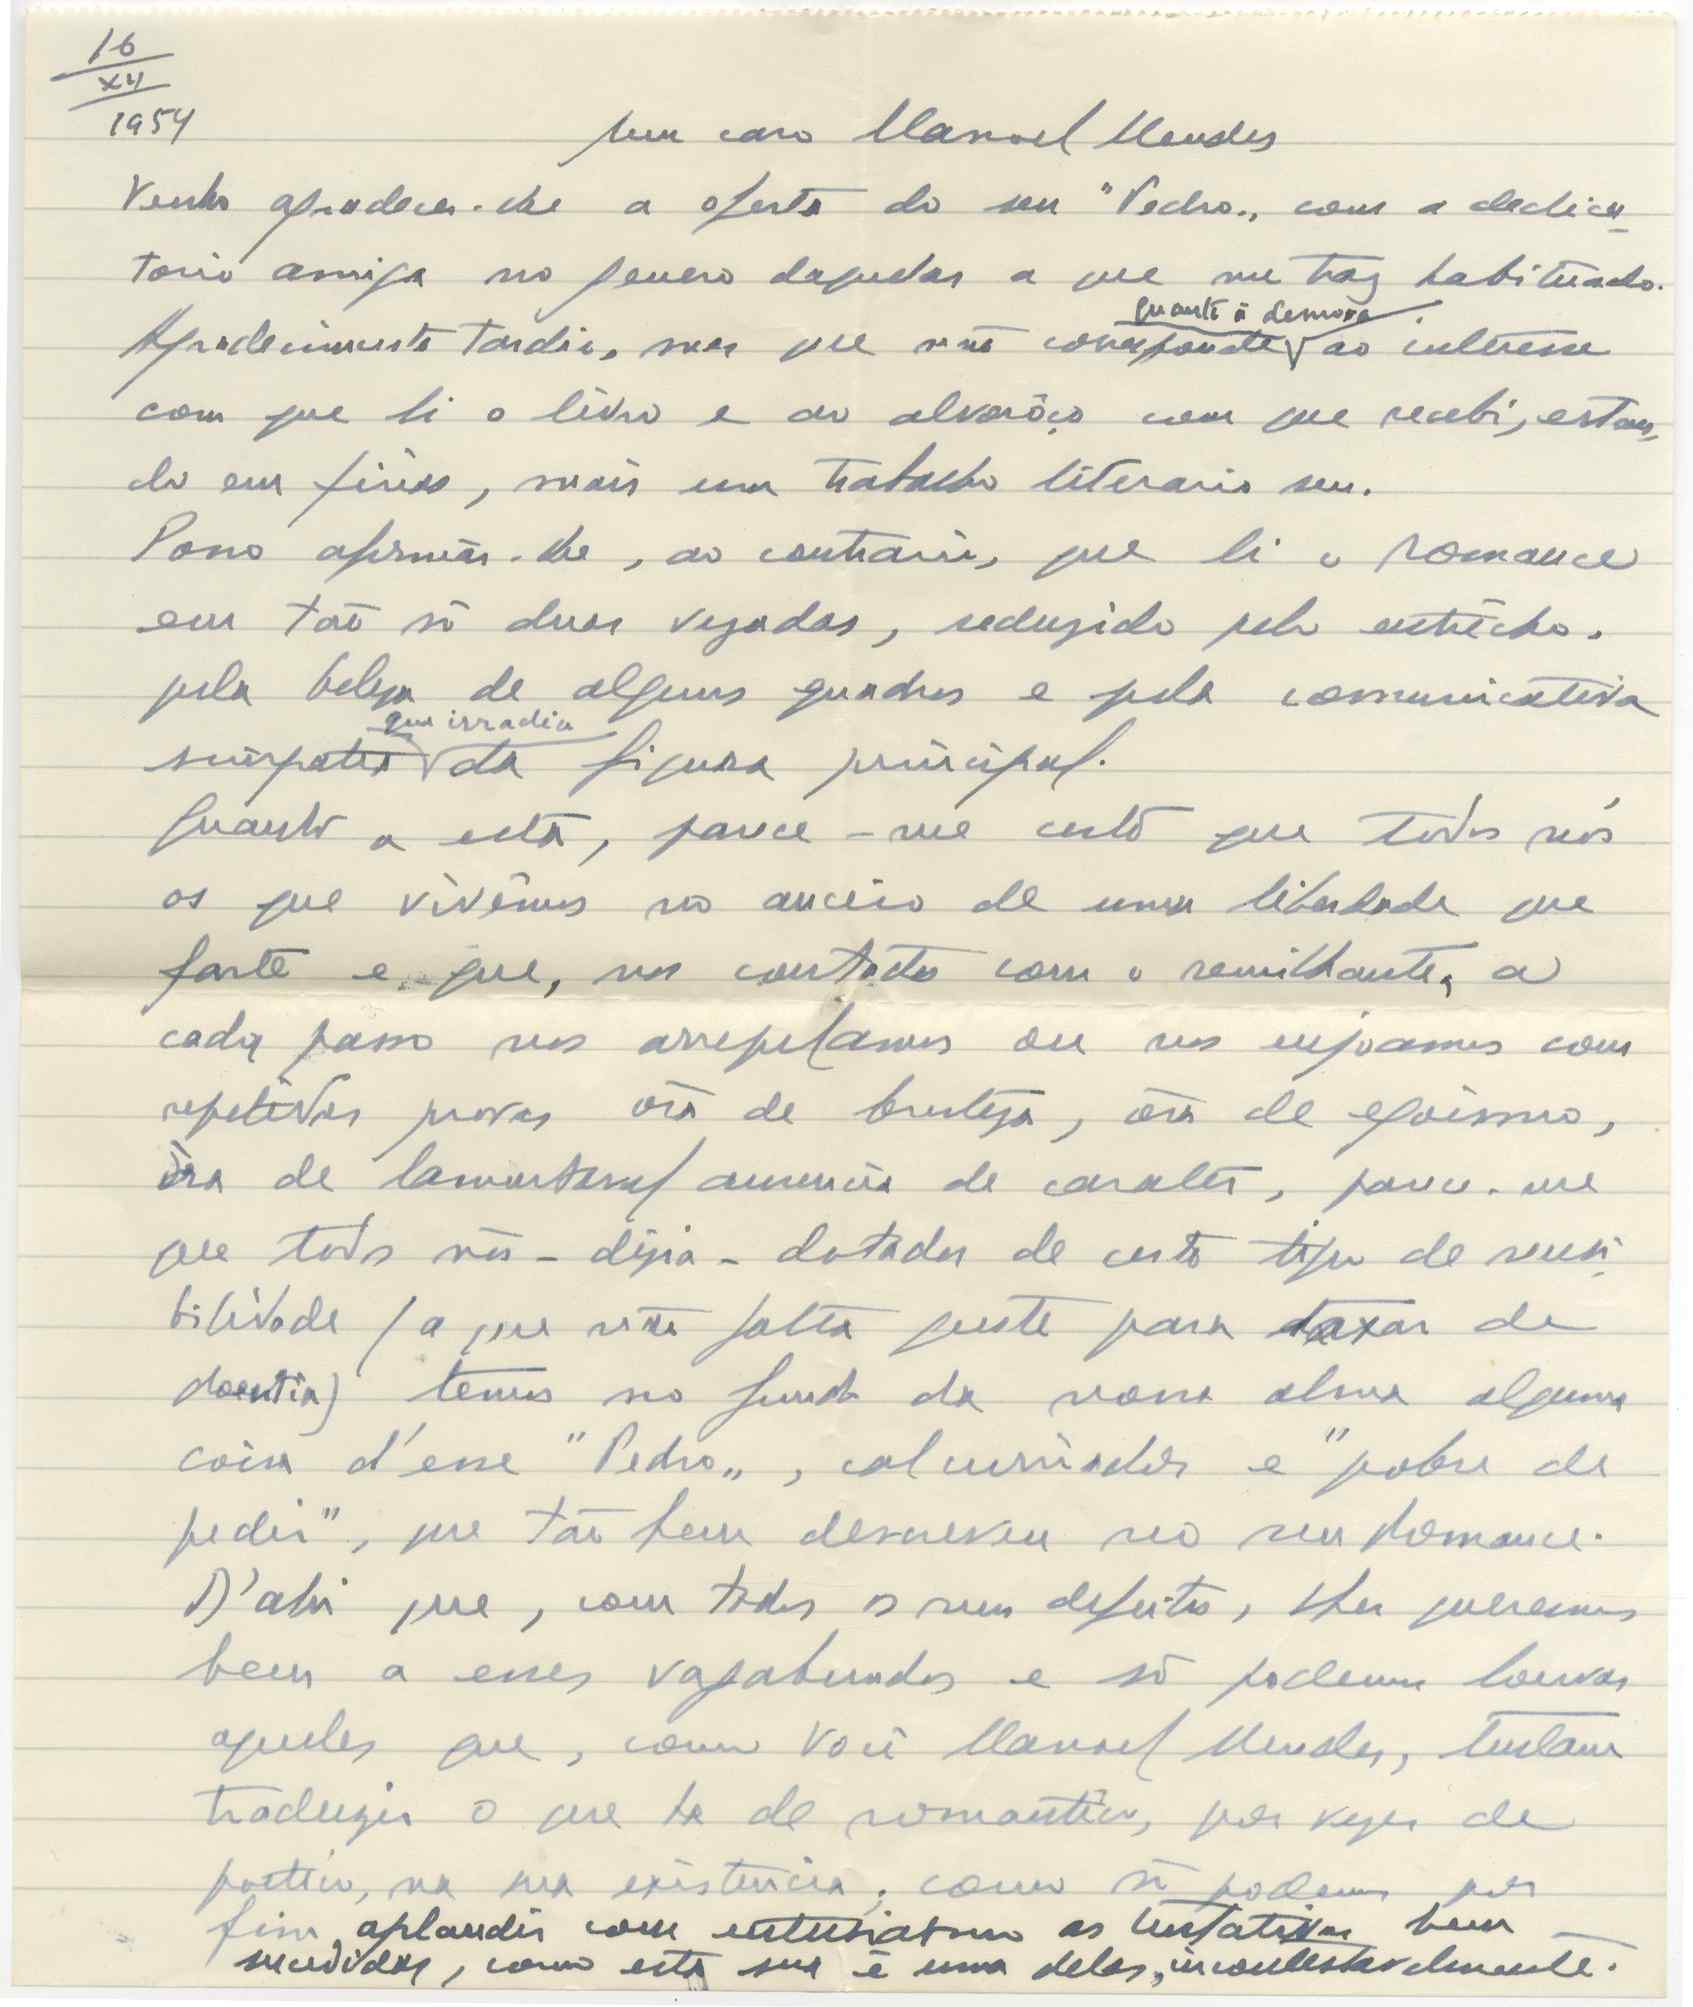 16
XII
1954
Meu caro Manoel Mendes
Venho agradecer-lhe a oferta do seu "Pedro„ com a dedica
toria amiga no genero daquelas a que me traz habituado.
quanto à demora
Agradecimento tardio, mas que não corresponde ao interesse
com que li o livro e ao alvorôço com que recebi, estan
do em férias, mais um trabalho literario seu.
Posso afirmar-lhe, ao contrario, que li o romance
em tão só duas vezadas, seduzido pelo entrêcho,
pela beleza de alguns quadros e pela comunicativa
que irradia
simpatia da figura principal.
Quanto a esta, parece-me certo que todos nós
os que vivêmos no anceio de uma liberdade que
farte e que, nos contatos com o semilhante, a
cada passo nos arrepelamos ou nos enjoamos com
repetidas provas óra de bruteza, óra de egoismo,
óra de lamentavel ausencia de caracter, parece-me
que todos nós - dizia - dotados de certo tipo de sensi
bilidade (a que não falta gente para taxar de
doentia) temos no fundo da nossa alma alguma
coisa d'esse "Pedro„, calcurriador e "pobre de
pedir", que tão bem descreveu no seu romance.
D'ahi que, com todos os seus defeitos, lhes queremos
bem a esses vagabundos e só podemos louvar
aqueles que, como Você Manoel Mendes, tentam
traduzir o que ha de romantico, por vezes de
poetico, na sua existencia; como só podemos por
fim aplaudir com entusiasmo as tentativas bem
sucedidas, como esta sua é uma delas, incontestavelmente.